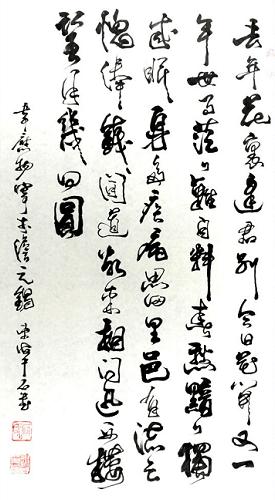 去年花裏逢君別今日花開又一
年世事茫々難自料春愁黯々獨
成眠身多疾病思田里邑有流亡
愧俸錢聞道欲來相問訊西樓
望月幾回圓
韋應物寄李儋元錫